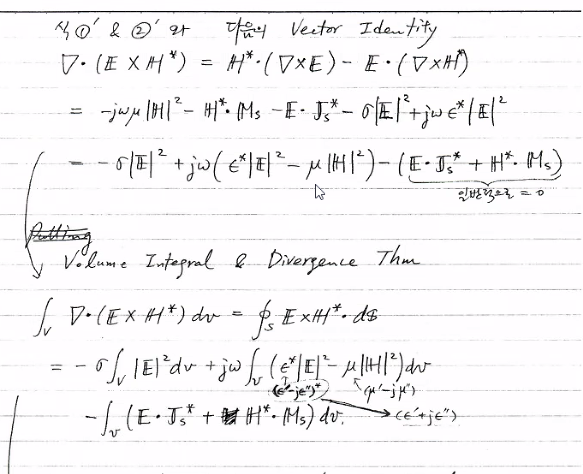 식 ①' & ②' 와 다음의 Vector Identity
∇·(E × H*) = H*·(∇×E) − E·(∇×H*)
= −jωμ|H|² − H*·Ms − E·Js* − σ|E|² + jωε*|E|²
= −σ|E|² + jω(ε*|E|² − μ|H|²) − (E·Js* + H*·Ms)
일반적으로 = 0
Putting
Volume Integral & Divergence Thm
∫v ∇·(E × H*) dv = ∮s E × H*·ds
= −σ∫v |E|² dv + jω∫v (ε*|E|² − μ|H|²) dv
(ε'−jε'')* (μ'−jμ'')
−∫v (E·Js* + H*·Ms) dv. (ε'+jε'')